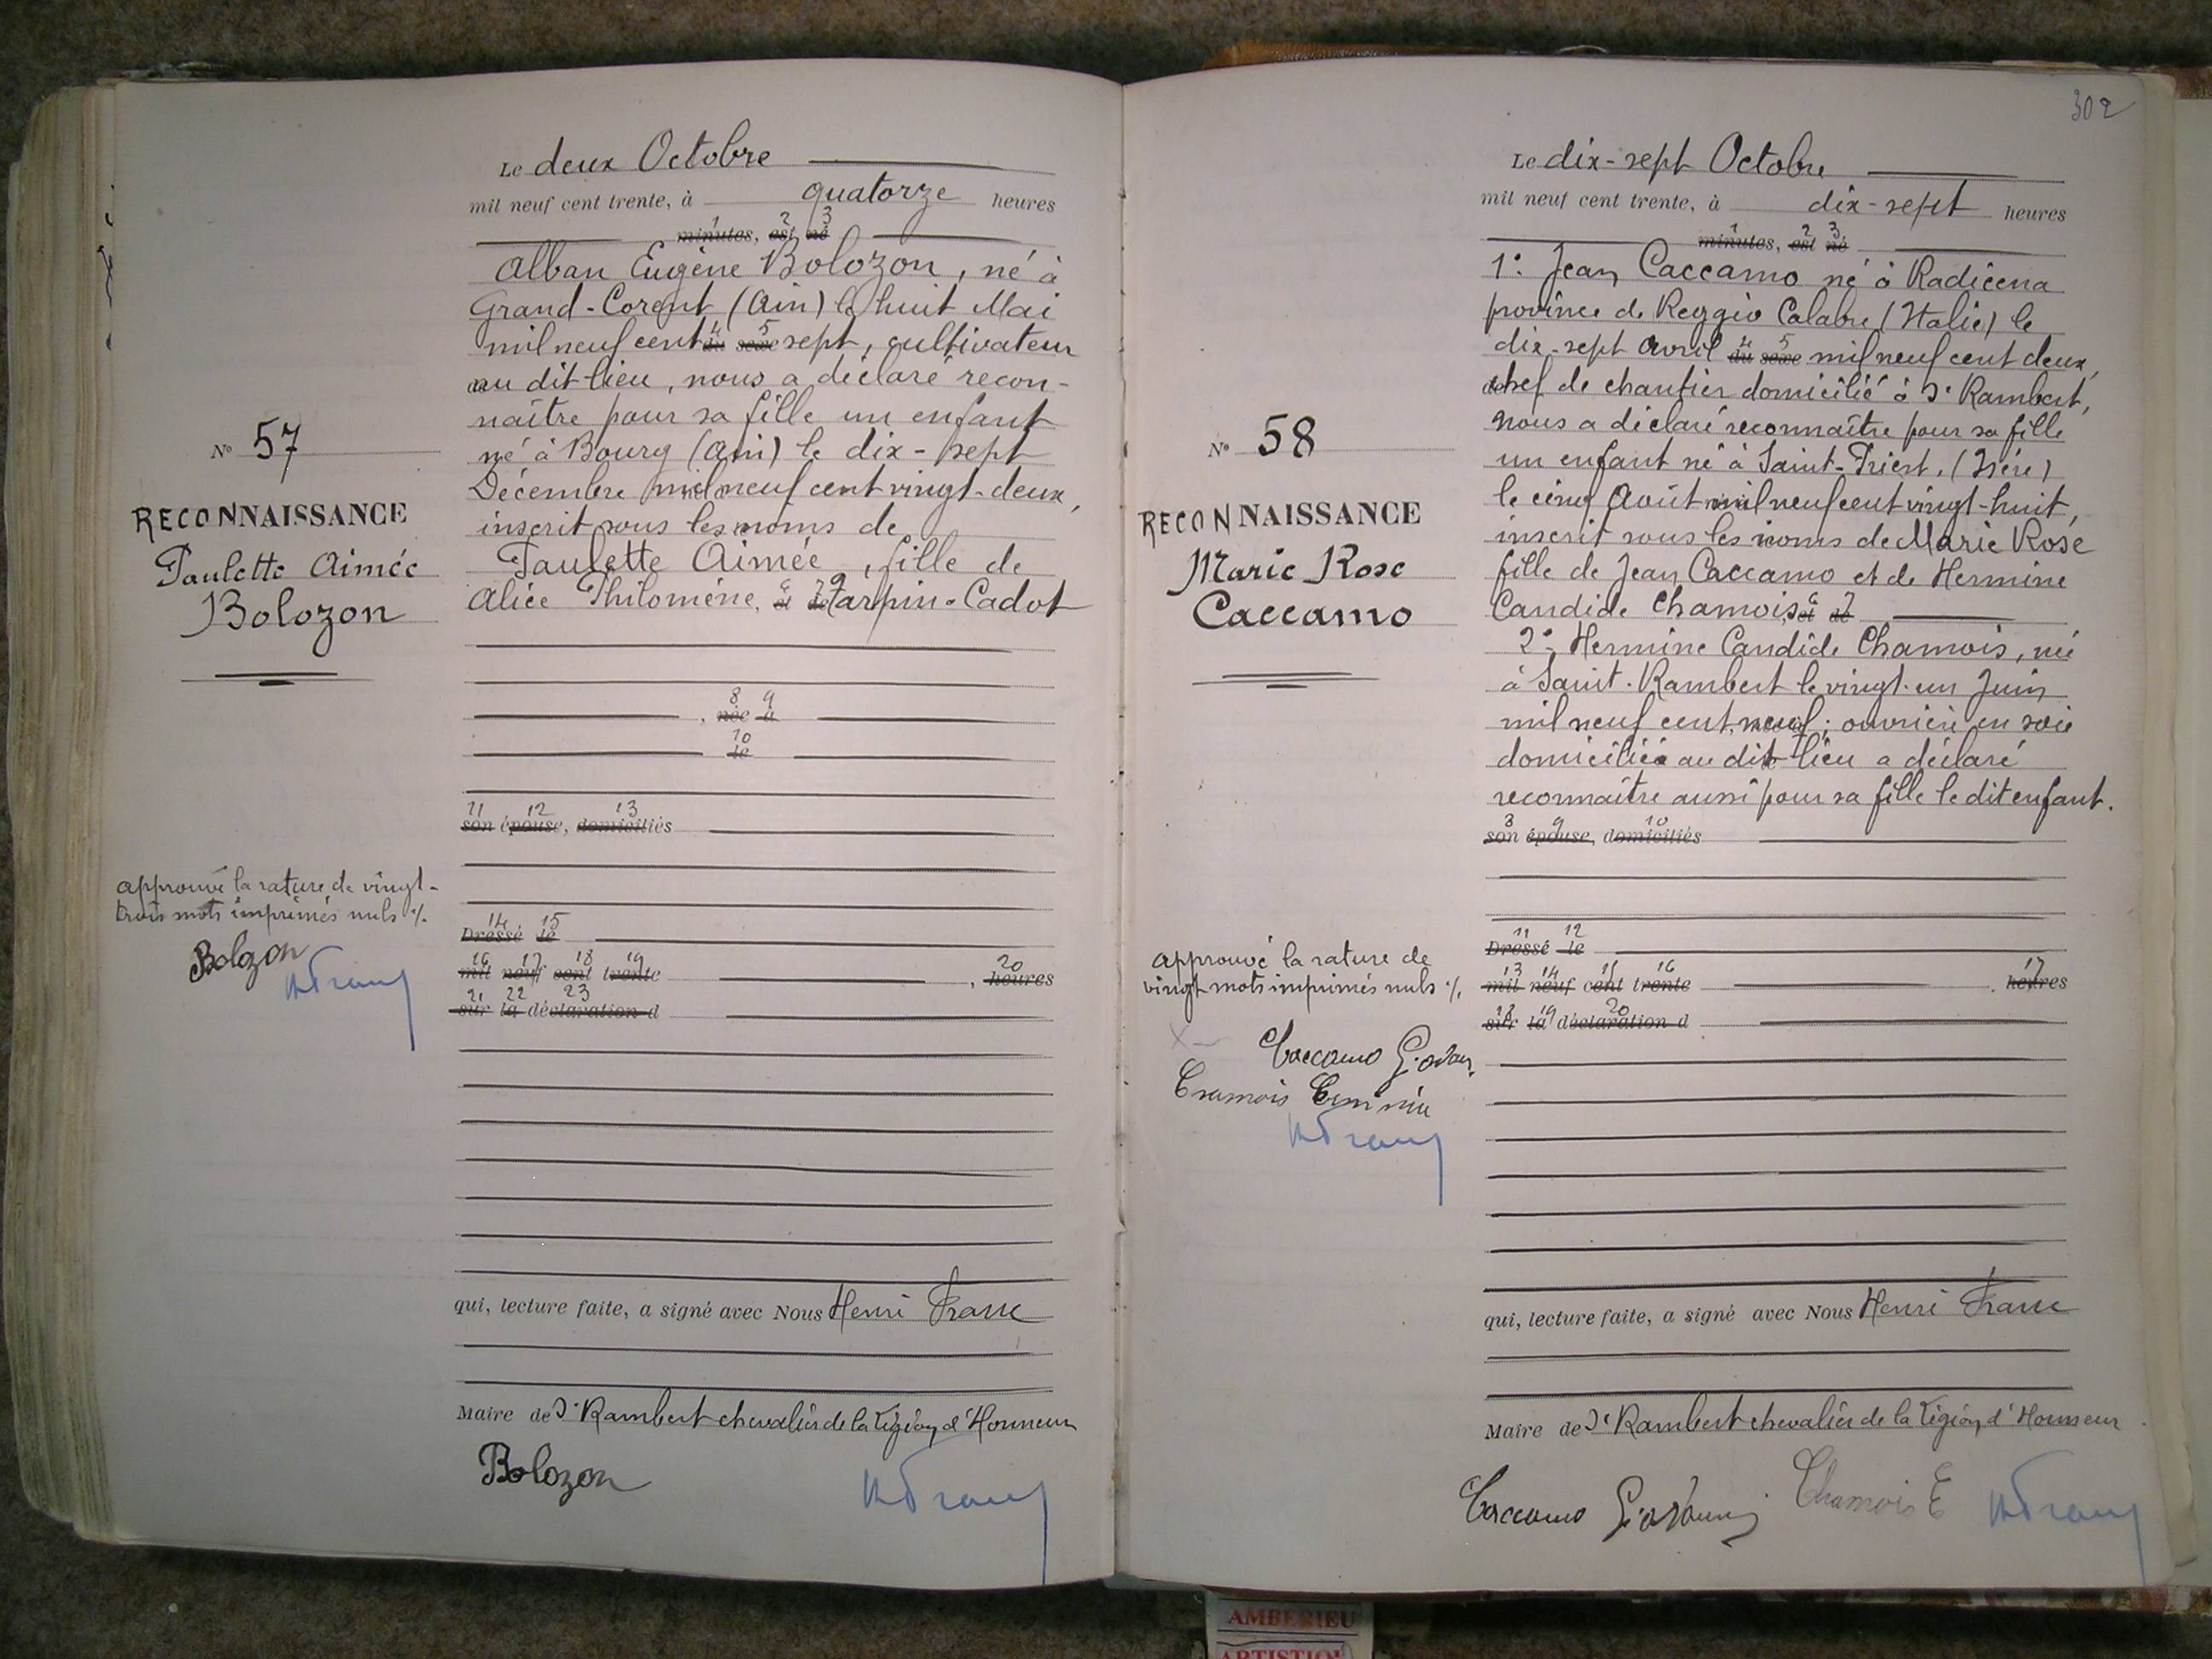 Le deux Octobre
mil neuf cent trente, à quatorze heures
1 2 3
minutes, est né
Alban Eugène Bolozon, né à
Grand-Corent (Ain) le huit Mai
4 5
mil neuf cent du sexe sept, cultivateur
au dit-lieu, nous a déclaré recon-
naître pour sa fille un enfant
né à Bourg (Ain) le dix-sept
Décembre mil neuf cent vingt-deux,
inscrit sous les noms de
Paulette Aimée, fille de
6 7
Alice Philomène, et de Tarpin-Cadot
8 9
, née à
10
le
11 12 13
son épouse, domiciliés
14 15
Dressé le
16 17 18 19 20
mil neuf cent trente , heures
21 22 23
sur la déclaration d
qui, lecture faite, a signé avec Nous Henri Franc
Maire de St Rambert chevalier de la Légion d'Honneur
Bolozon
HFranc
No 57
RECONNAISSANCE
Paulette Aimée
Bolozon
approuvé la rature de vingt-
trois mots imprimés nuls ./.
Bolozon
HFranc
302
Le dix-sept Octobre
mil neuf cent trente, à dix-sept heures
1 2 3
minutes, est né
1° Jean Caccamo né à Radicena
province de Reggio Calabre (Italie) le
4 5
dix-sept Avril du sexe mil neuf cent deux,
chef de chantier domicilié à St Rambert,
nous a déclaré reconnaître pour sa fille
un enfant né à Saint-Priest, (Isère)
le cinq Août mil neuf cent vingt-huit,
inscrit sous les noms de Marie Rose
fille de Jean Caccamo et de Hermine
6 7
Candide Chamois, et de
2° Hermine Candide Chamois, née
à Saint-Rambert le vingt-un Juin
mil neuf cent neuf; ouvrière en soie
domiciliée au dit lieu a déclaré
reconnaître aussi pour sa fille le dit enfant.
8 9 10
son épouse, domiciliés
11 12
Dressé le
13 14 15 16 17
mil neuf cent trente , heures
18 19 20
sur la déclaration d
qui, lecture faite, a signé avec Nous Henri Franc
Maire de St Rambert chevalier de la Légion d'Honneur
Caccamo Chamois E HFranc
No 58
RECONNAISSANCE
Marie Rose
Caccamo
approuvé la rature de
vingt mots imprimés nuls ./.
Caccamo
Chamois
HFranc
AMBERIEU